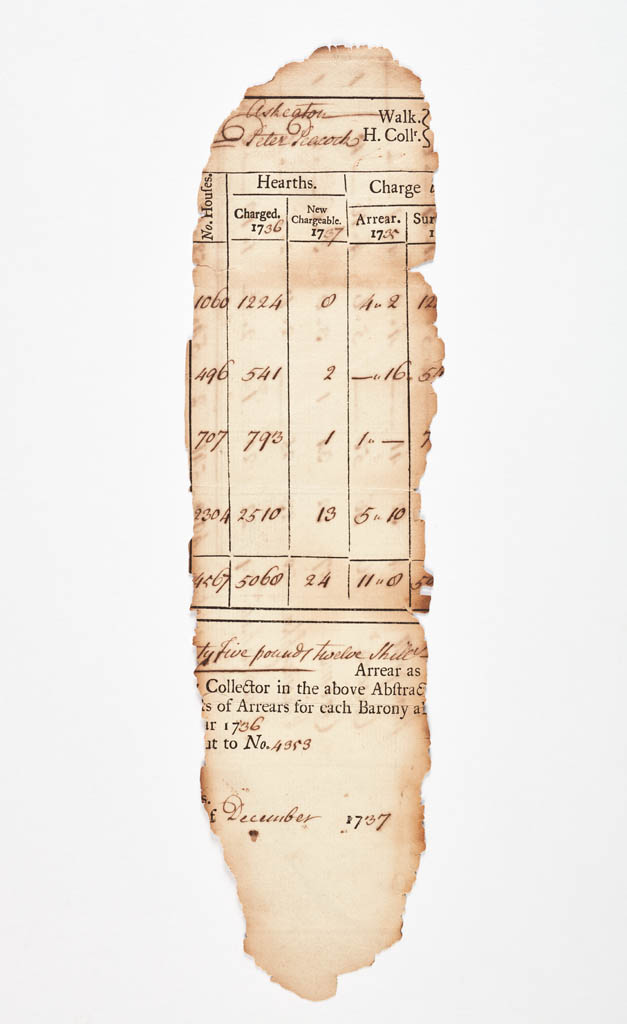 Askeaton Walk.
Peter Peacock H. Collr.
No. Houses. Hearths. Charge
Charged. 1736 New Chargeable. 1737 Arrear. 1735 Sur
1060 1224 8 4 " 2 12
496 541 2 — " 16 54
707 793 1 1 " — 7
2304 2510 13 5 " 10
4567 5068 24 11 " 8 50
ty five pounds twelve Shills
Arrear as
Collector in the above Abstrac
s of Arrears for each Barony a
ar 1736
ut to No. 4353
s.
f December 1737